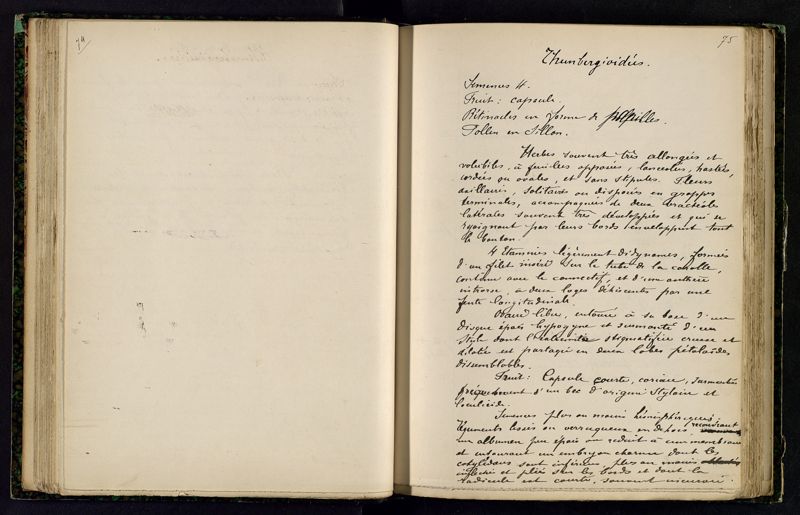 74
75
Thunbergiidées.
Semences 4.
Fruit : capsule.
Rétinacles en forme de papilles.
Pollen en Sillon.
Herbes souvent très allongées et
volubiles, à feuilles opposées, lancéolées, hastées,
cordées ou ovales, et sans stipules. Fleurs
axillaires, solitaires ou disposées en grappes
terminales, accompagnées de deux bractéoles
latérales souvent très développées et qui se
rejoignant par leurs bords enveloppent tout
le bouton.
4 Etamines légèrement didynames, formées
d'un filet inséré sur le tube de la corolle,
continu avec le connectif, et d'une anthère
introrse, à deux loges déhiscentes par une
fente longitudinale.
Ovaire libre, entouré à sa base d'un
disque épais hypogyne et surmonté d'un
style dont l'extrémité stigmatifère creuse et
dilatée est partagée en deux lobes pétaloïdes
dissemblables.
Fruit : Capsule courte, coriace, surmontée
fréquemment d'un bec d'origine stylaire et
loculicide.
Semences plus ou moins hémisphériques;
téguments lisses ou verruqueux en dehors recouvrant
un albumen peu épais ou réduit à une membrane
et entourant un embryon charnu dont les
cotylédons sont inférieurs plus ou moins
infléchis et pliés sur les bords et dont la
radicule est courte, souvent incurvée.